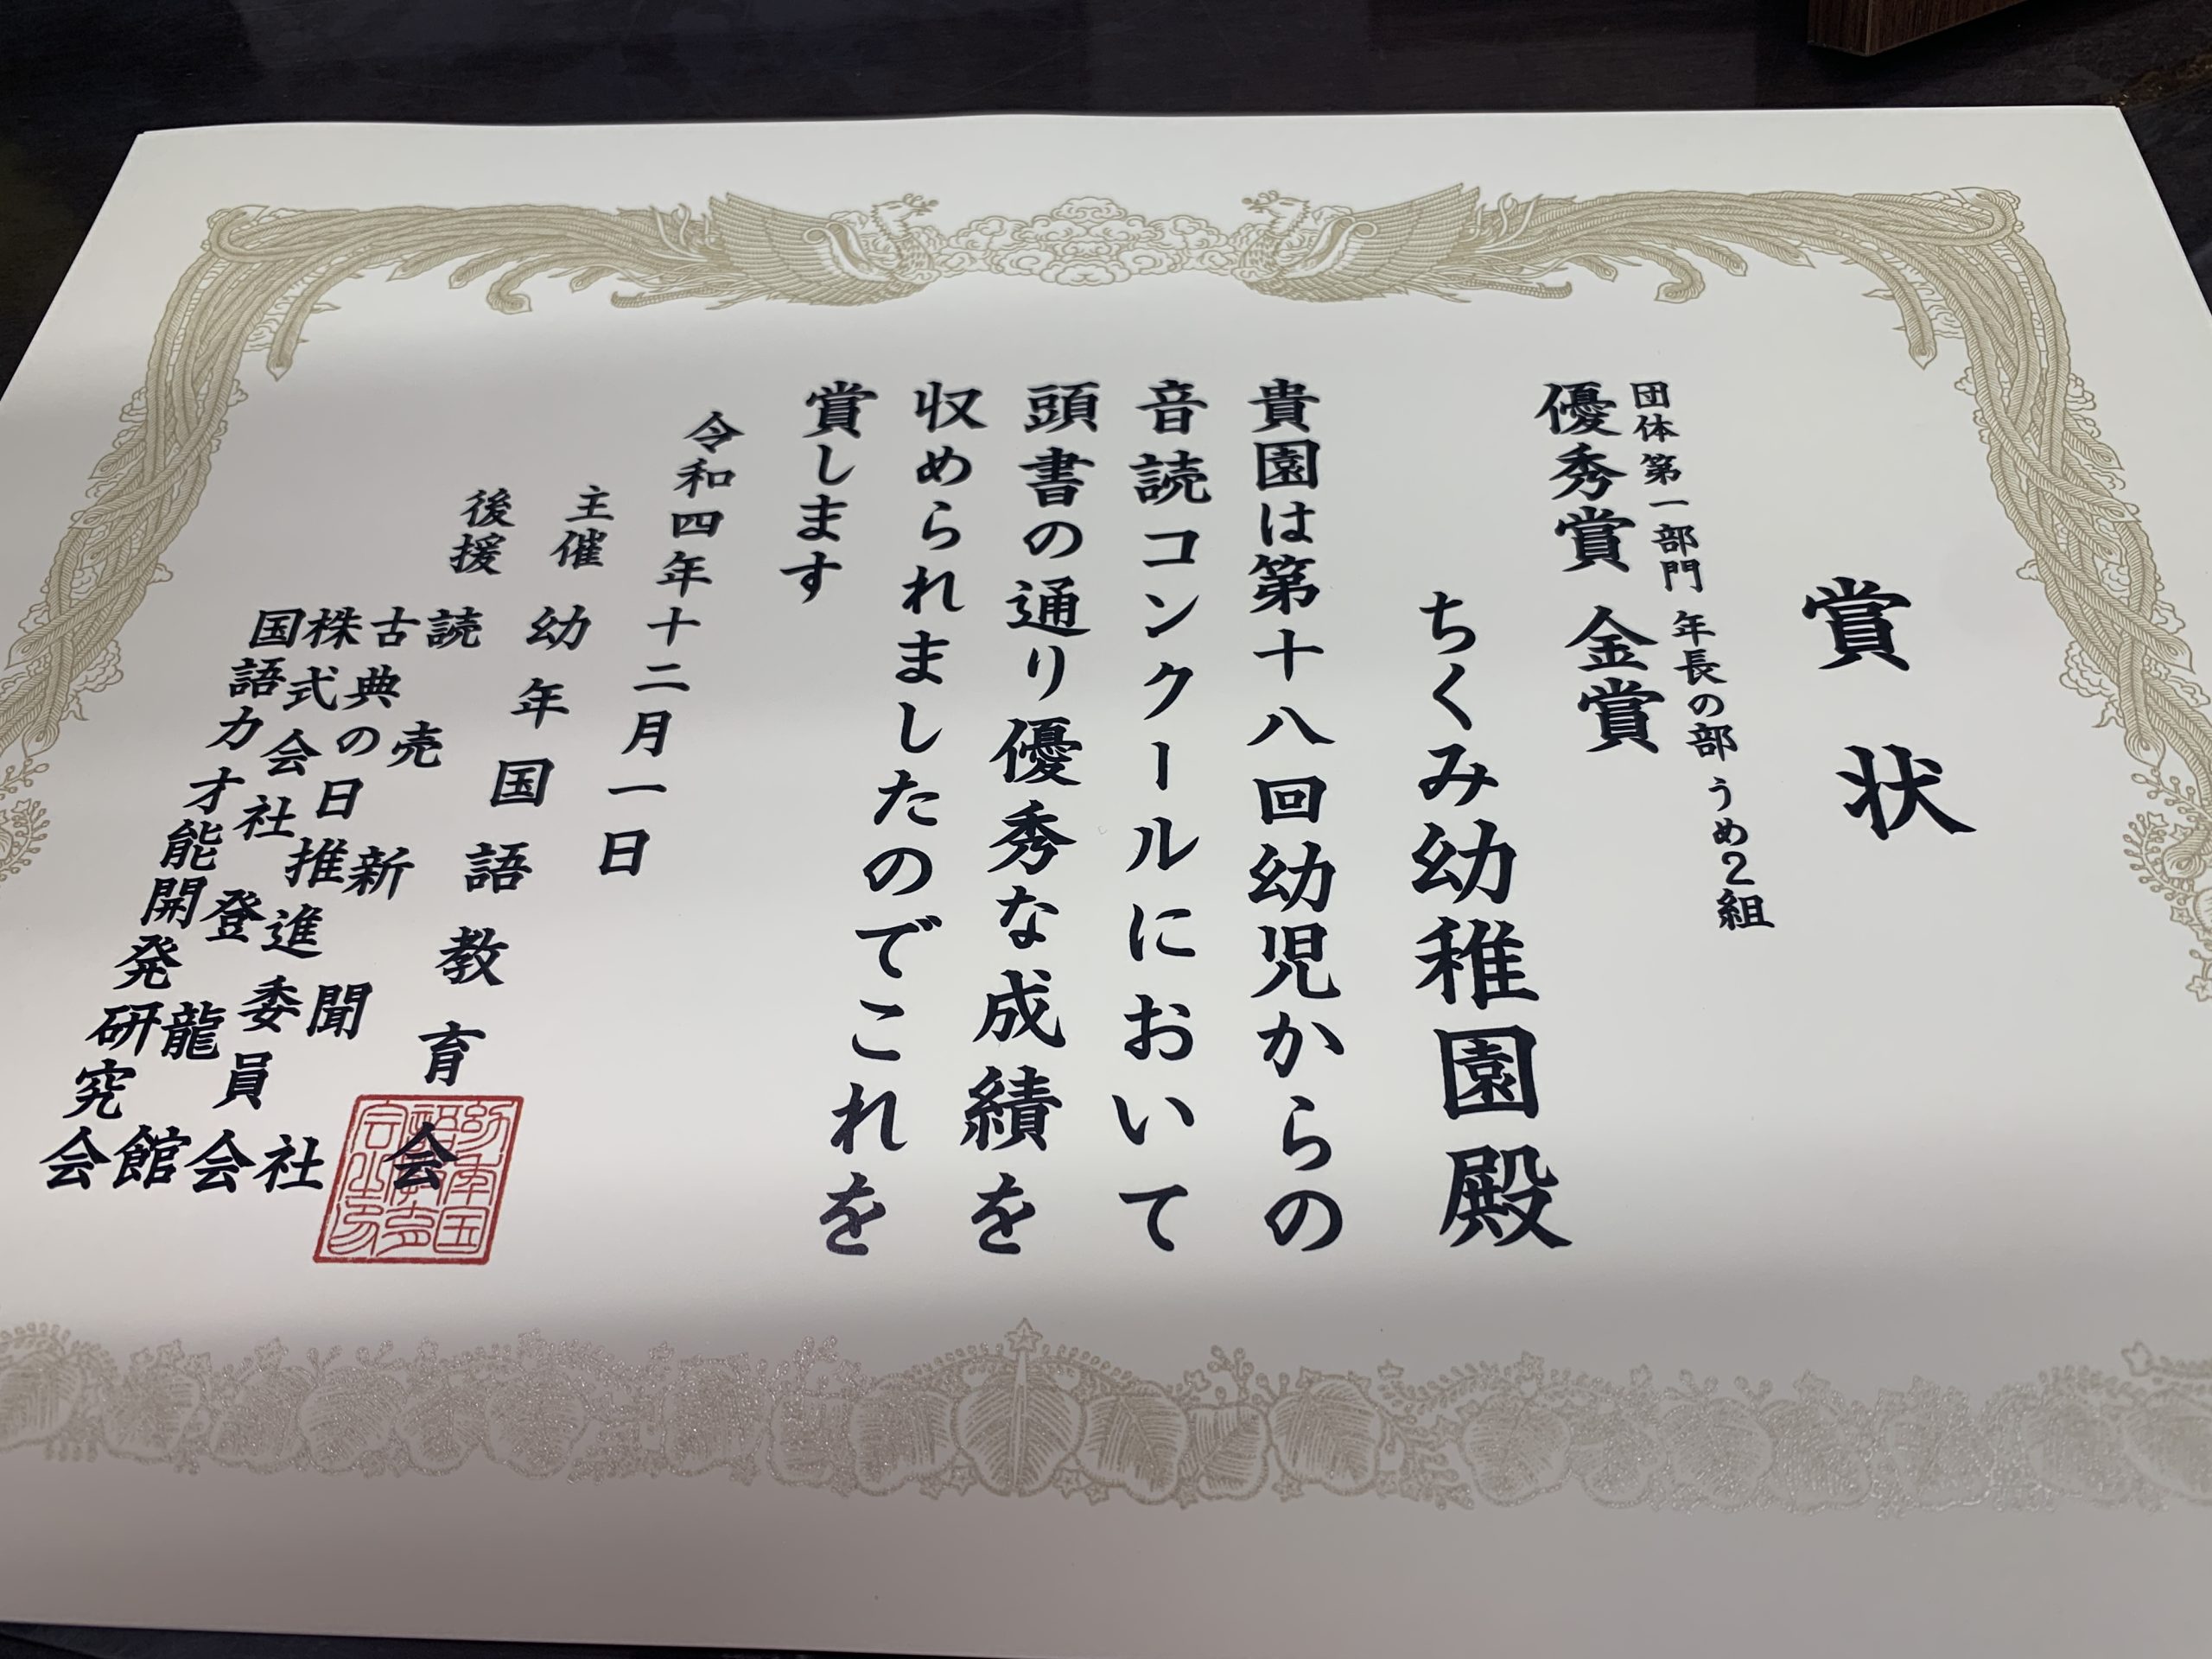 賞状
団体第一部門 年長の部 うめ2組
優秀賞 金賞
ちくみ幼稚園殿
貴園は第十八回幼児からの
音読コンクールにおいて
頭書の通り優秀な成績を
収められましたのでこれを
賞します
令和四年十二月一日
主催 幼年国語教育会
後援 読売新聞社
古典の日推進委員会
株式会社登龍館
国語力才能開発研究会